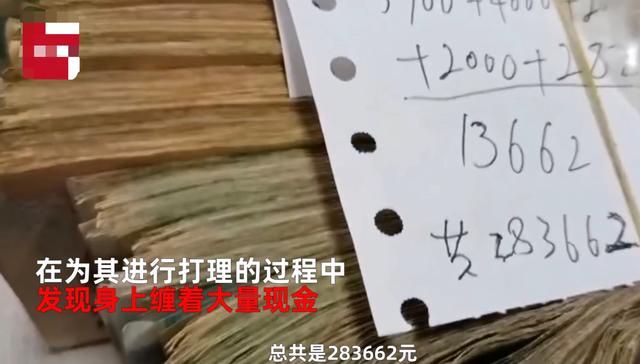 +2000+282
13662
共283662
在为其进行打理的过程中
发现身上缠着大量现金
总共是283662元